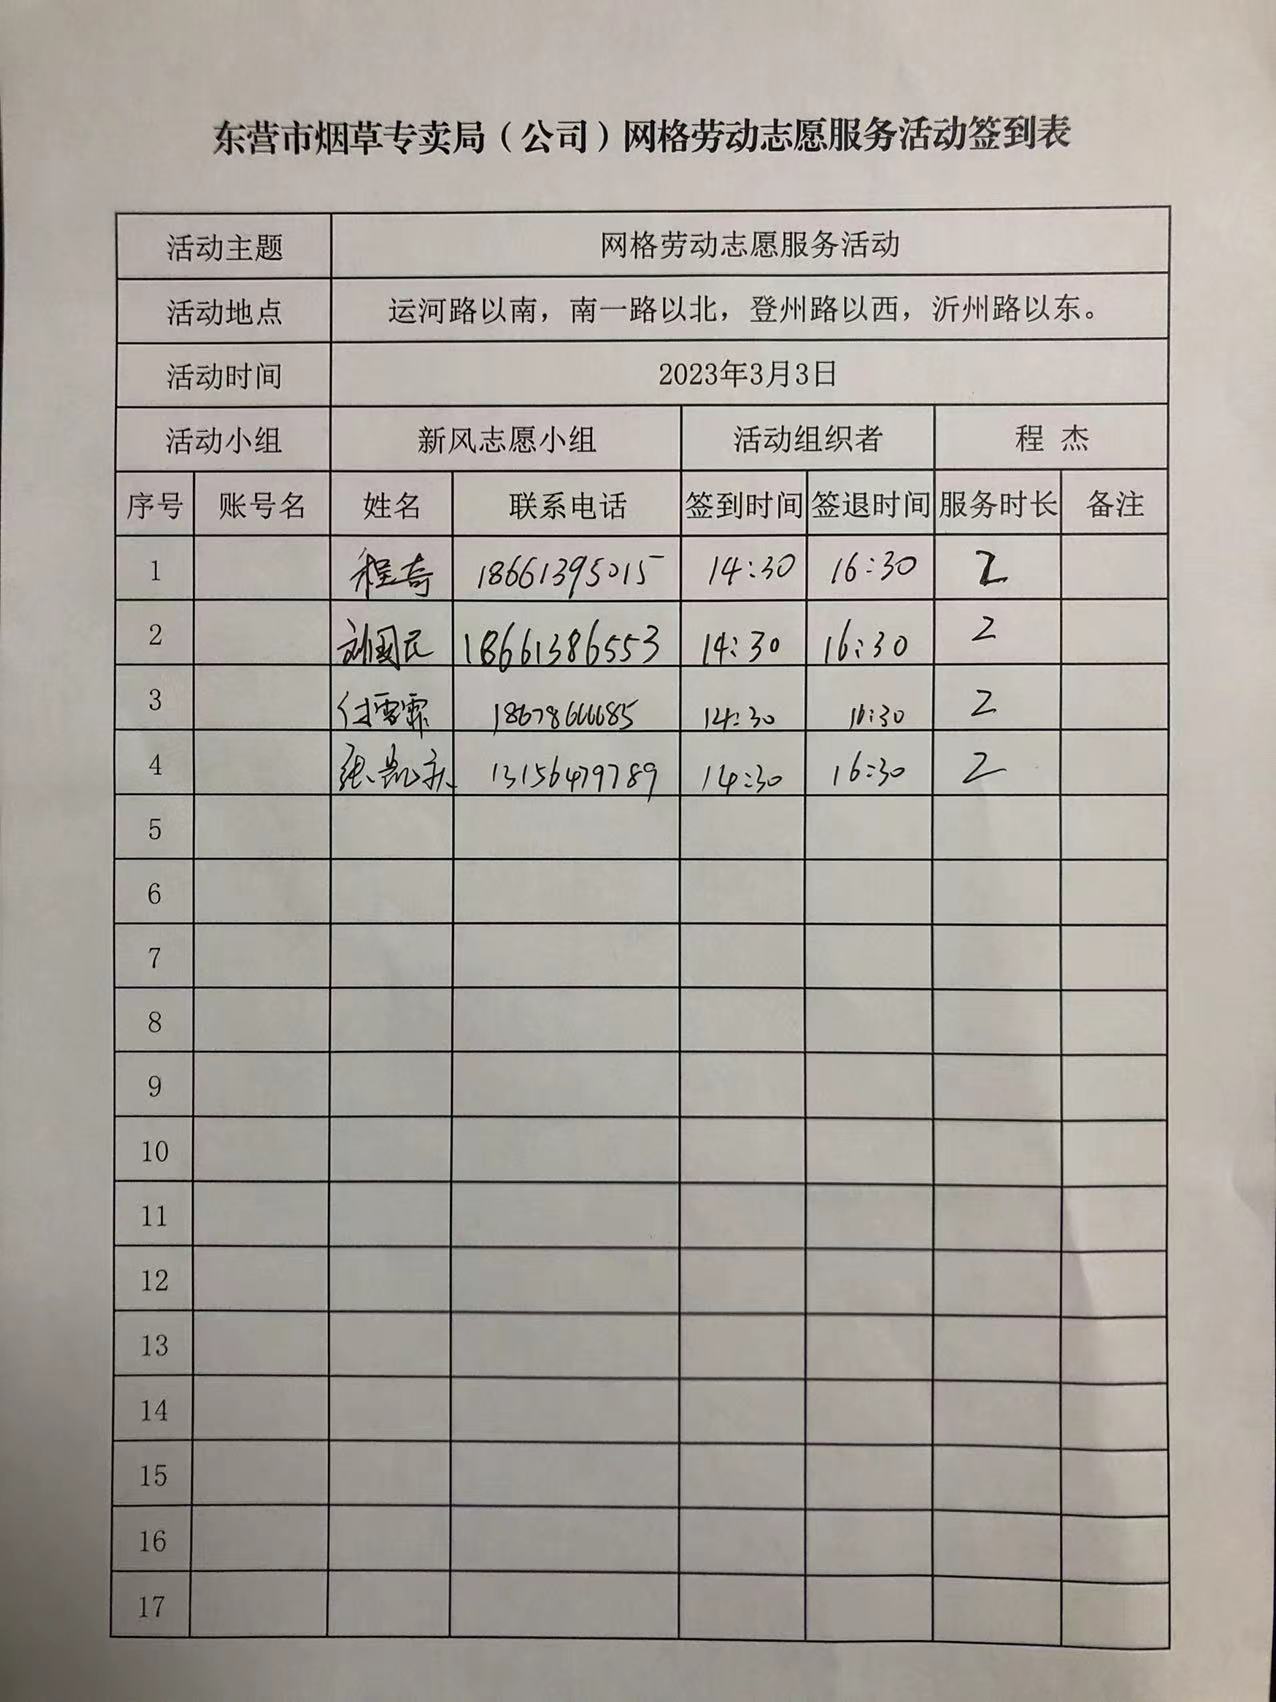 东营市烟草专卖局（公司）网格劳动志愿服务活动签到表
活动主题 网格劳动志愿服务活动
活动地点 运河路以南，南一路以北，登州路以西，沂州路以东。
活动时间 2023年3月3日
活动小组 新风志愿小组 活动组织者 程 杰
序号 账号名 姓名 联系电话 签到时间 签退时间 服务时长 备注
1 程奇 18661395015 14:30 16:30 2
2 刘国民 18661386553 14:30 16:30 2
3 付雪霏 18678666685 14:30 16:30 2
4 13156479789 14:30 16:30 2
5
6
7
8
9
10
11
12
13
14
15
16
17